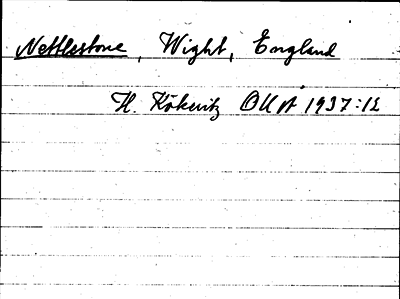 Nettlestone, Wight, England
H. Kökeritz OUÅ 1937:12